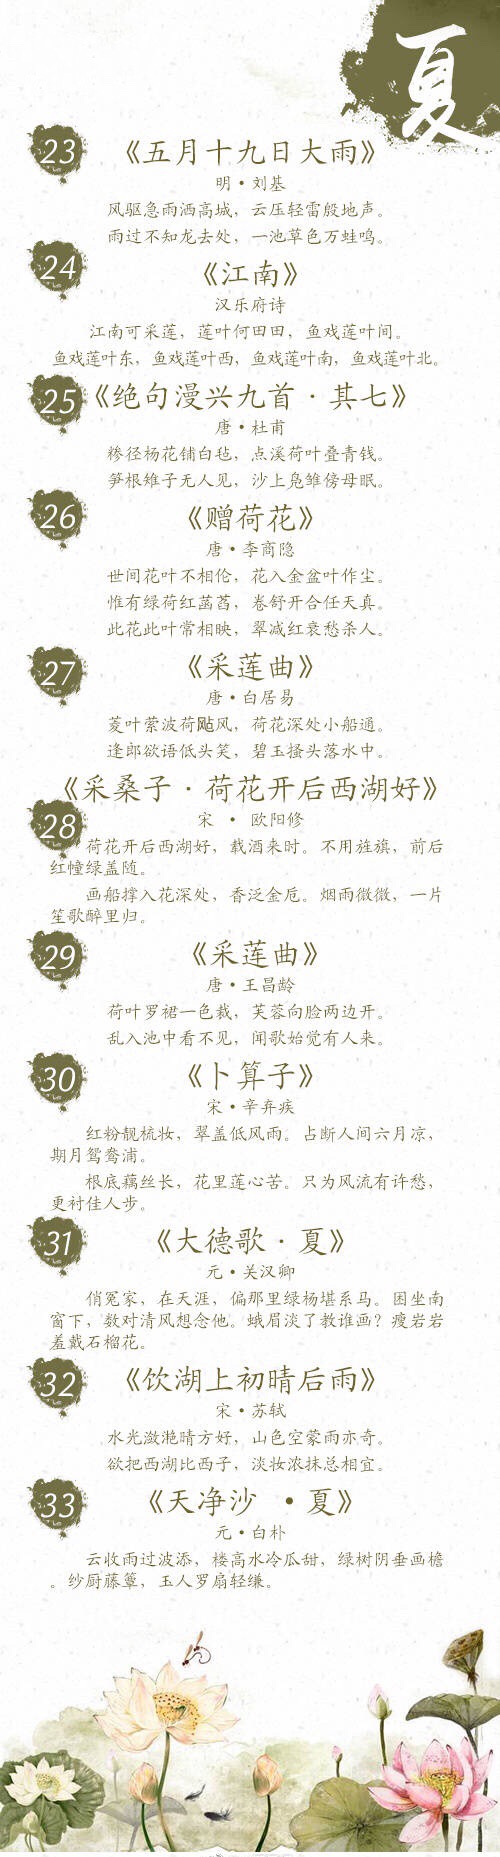 夏
23
《五月十九日大雨》
明·刘基
风驱急雨洒高城，云压轻雷殷地声。
雨过不知龙去处，一池草色万蛙鸣。
24
《江南》
汉乐府诗
江南可采莲，莲叶何田田，鱼戏莲叶间。
鱼戏莲叶东，鱼戏莲叶西，鱼戏莲叶南，鱼戏莲叶北。
25
《绝句漫兴九首·其七》
唐·杜甫
糁径杨花铺白毡，点溪荷叶叠青钱。
笋根雉子无人见，沙上凫雏傍母眠。
26
《赠荷花》
唐·李商隐
世间花叶不相伦，花入金盆叶作尘。
惟有绿荷红菡萏，卷舒开合任天真。
此花此叶常相映，翠减红衰愁杀人。
27
《采莲曲》
唐·白居易
菱叶萦波荷飐风，荷花深处小船通。
逢郎欲语低头笑，碧玉搔头落水中。
《采桑子·荷花开后西湖好》
28
宋 · 欧阳修
荷花开后西湖好，载酒来时。不用旌旗，前后
红幢绿盖随。
画船撑入花深处，香泛金卮。烟雨微微，一片
笙歌醉里归。
29
《采莲曲》
唐·王昌龄
荷叶罗裙一色裁，芙蓉向脸两边开。
乱入池中看不见，闻歌始觉有人来。
30
《卜算子》
宋·辛弃疾
红粉靓梳妆，翠盖低风雨。占断人间六月凉，
期月鸳鸯浦。
根底藕丝长，花里莲心苦。只为风流有许愁，
更衬佳人步。
31
《大德歌·夏》
元·关汉卿
俏冤家，在天涯，偏那里绿杨堪系马。困坐南
窗下，数对清风想念他。蛾眉淡了教谁画？瘦岩岩
羞戴石榴花。
32
《饮湖上初晴后雨》
宋·苏轼
水光潋滟晴方好，山色空蒙雨亦奇。
欲把西湖比西子，淡妆浓抹总相宜。
33
《天净沙 ·夏》
元·白朴
云收雨过波添，楼高水冷瓜甜，绿树阴垂画檐
。纱厨藤簟，玉人罗扇轻缣。